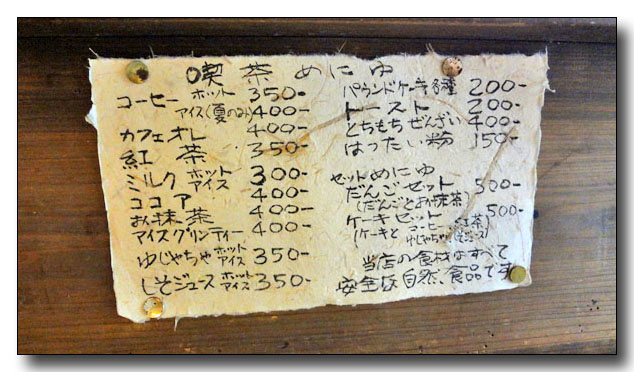 喫茶めにゆ
コーヒー ホット 350-
アイス(夏のみ) 400-
カフェオレ 400-
紅茶 350-
ミルク ホット アイス 300-
ココア 400-
お抹茶 400-
アイスグリンティー 400-
ゆじゃちゃ ホット アイス 350-
しそジュース ホット アイス 350-
パウンドケーキ各種 200-
トースト 200-
とちもちぜんざい 400-
はったい粉 150-
セットめにゆ
だんごセット 500-
(だんごとお抹茶)
ケーキセット 500-
(ケーキと コーヒー、紅茶
ゆじゃちゃ、しそジュース)
当店の食材はすべて
安全な自然食品です